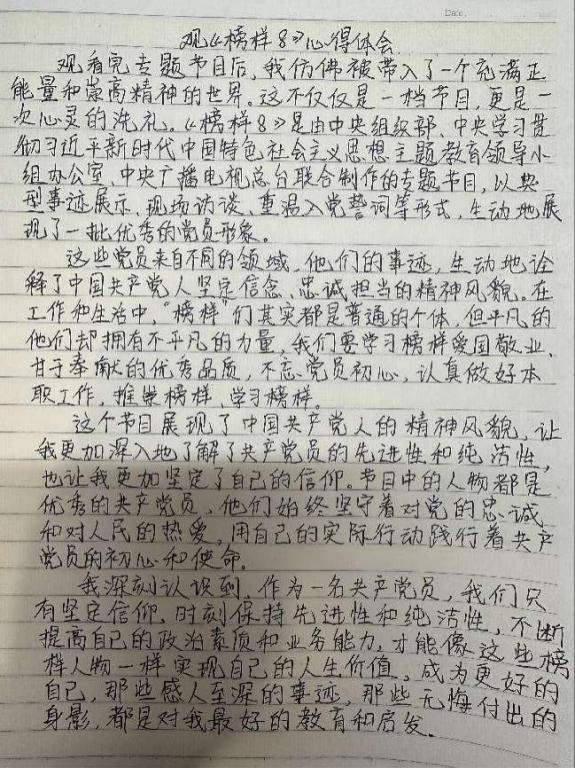 Date.
观《榜样8》心得体会
观看完专题节目后,我仿佛被带入了一个充满正
能量和崇高精神的世界。这不仅仅是一档节目,更是一
次心灵的洗礼。《榜样8》是由中央组织部、中央学习贯
彻习近平新时代中国特色社会主义思想主题教育领导小
组办公室、中央广播电视总台联合制作的专题节目,以典
型事迹展示、现场访谈、重温入党誓词等形式,生动地展
现了一批优秀的党员形象。
这些党员来自不同的领域,他们的事迹,生动地诠
释了中国共产党人坚定信念、忠诚担当的精神风貌。在
工作和生活中,“榜样”们其实都是普通的个体,但平凡的
他们却拥有不平凡的力量,我们要学习榜样爱国敬业、
甘于奉献的优秀品质,不忘党员初心,认真做好本
职工作,推崇榜样,学习榜样。
这个节目展现了中国共产党人的精神风貌,让
我更加深入地了解了共产党员的先进性和纯洁性,
也让我更加坚定了自己的信仰。节目中的人物都是
优秀的共产党员,他们始终坚守着对党的忠诚
和对人民的热爱,用自己的实际行动践行着共产
党员的初心和使命。
我深刻认识到,作为一名共产党员,我们只
有坚定信仰,时刻保持先进性和纯洁性,不断
提高自己的政治素质和业务能力,才能像这些榜
样人物一样实现自己的人生价值,成为更好的
自己,那些感人至深的事迹,那些无悔付出的
身影,都是对我最好的教育和启发。